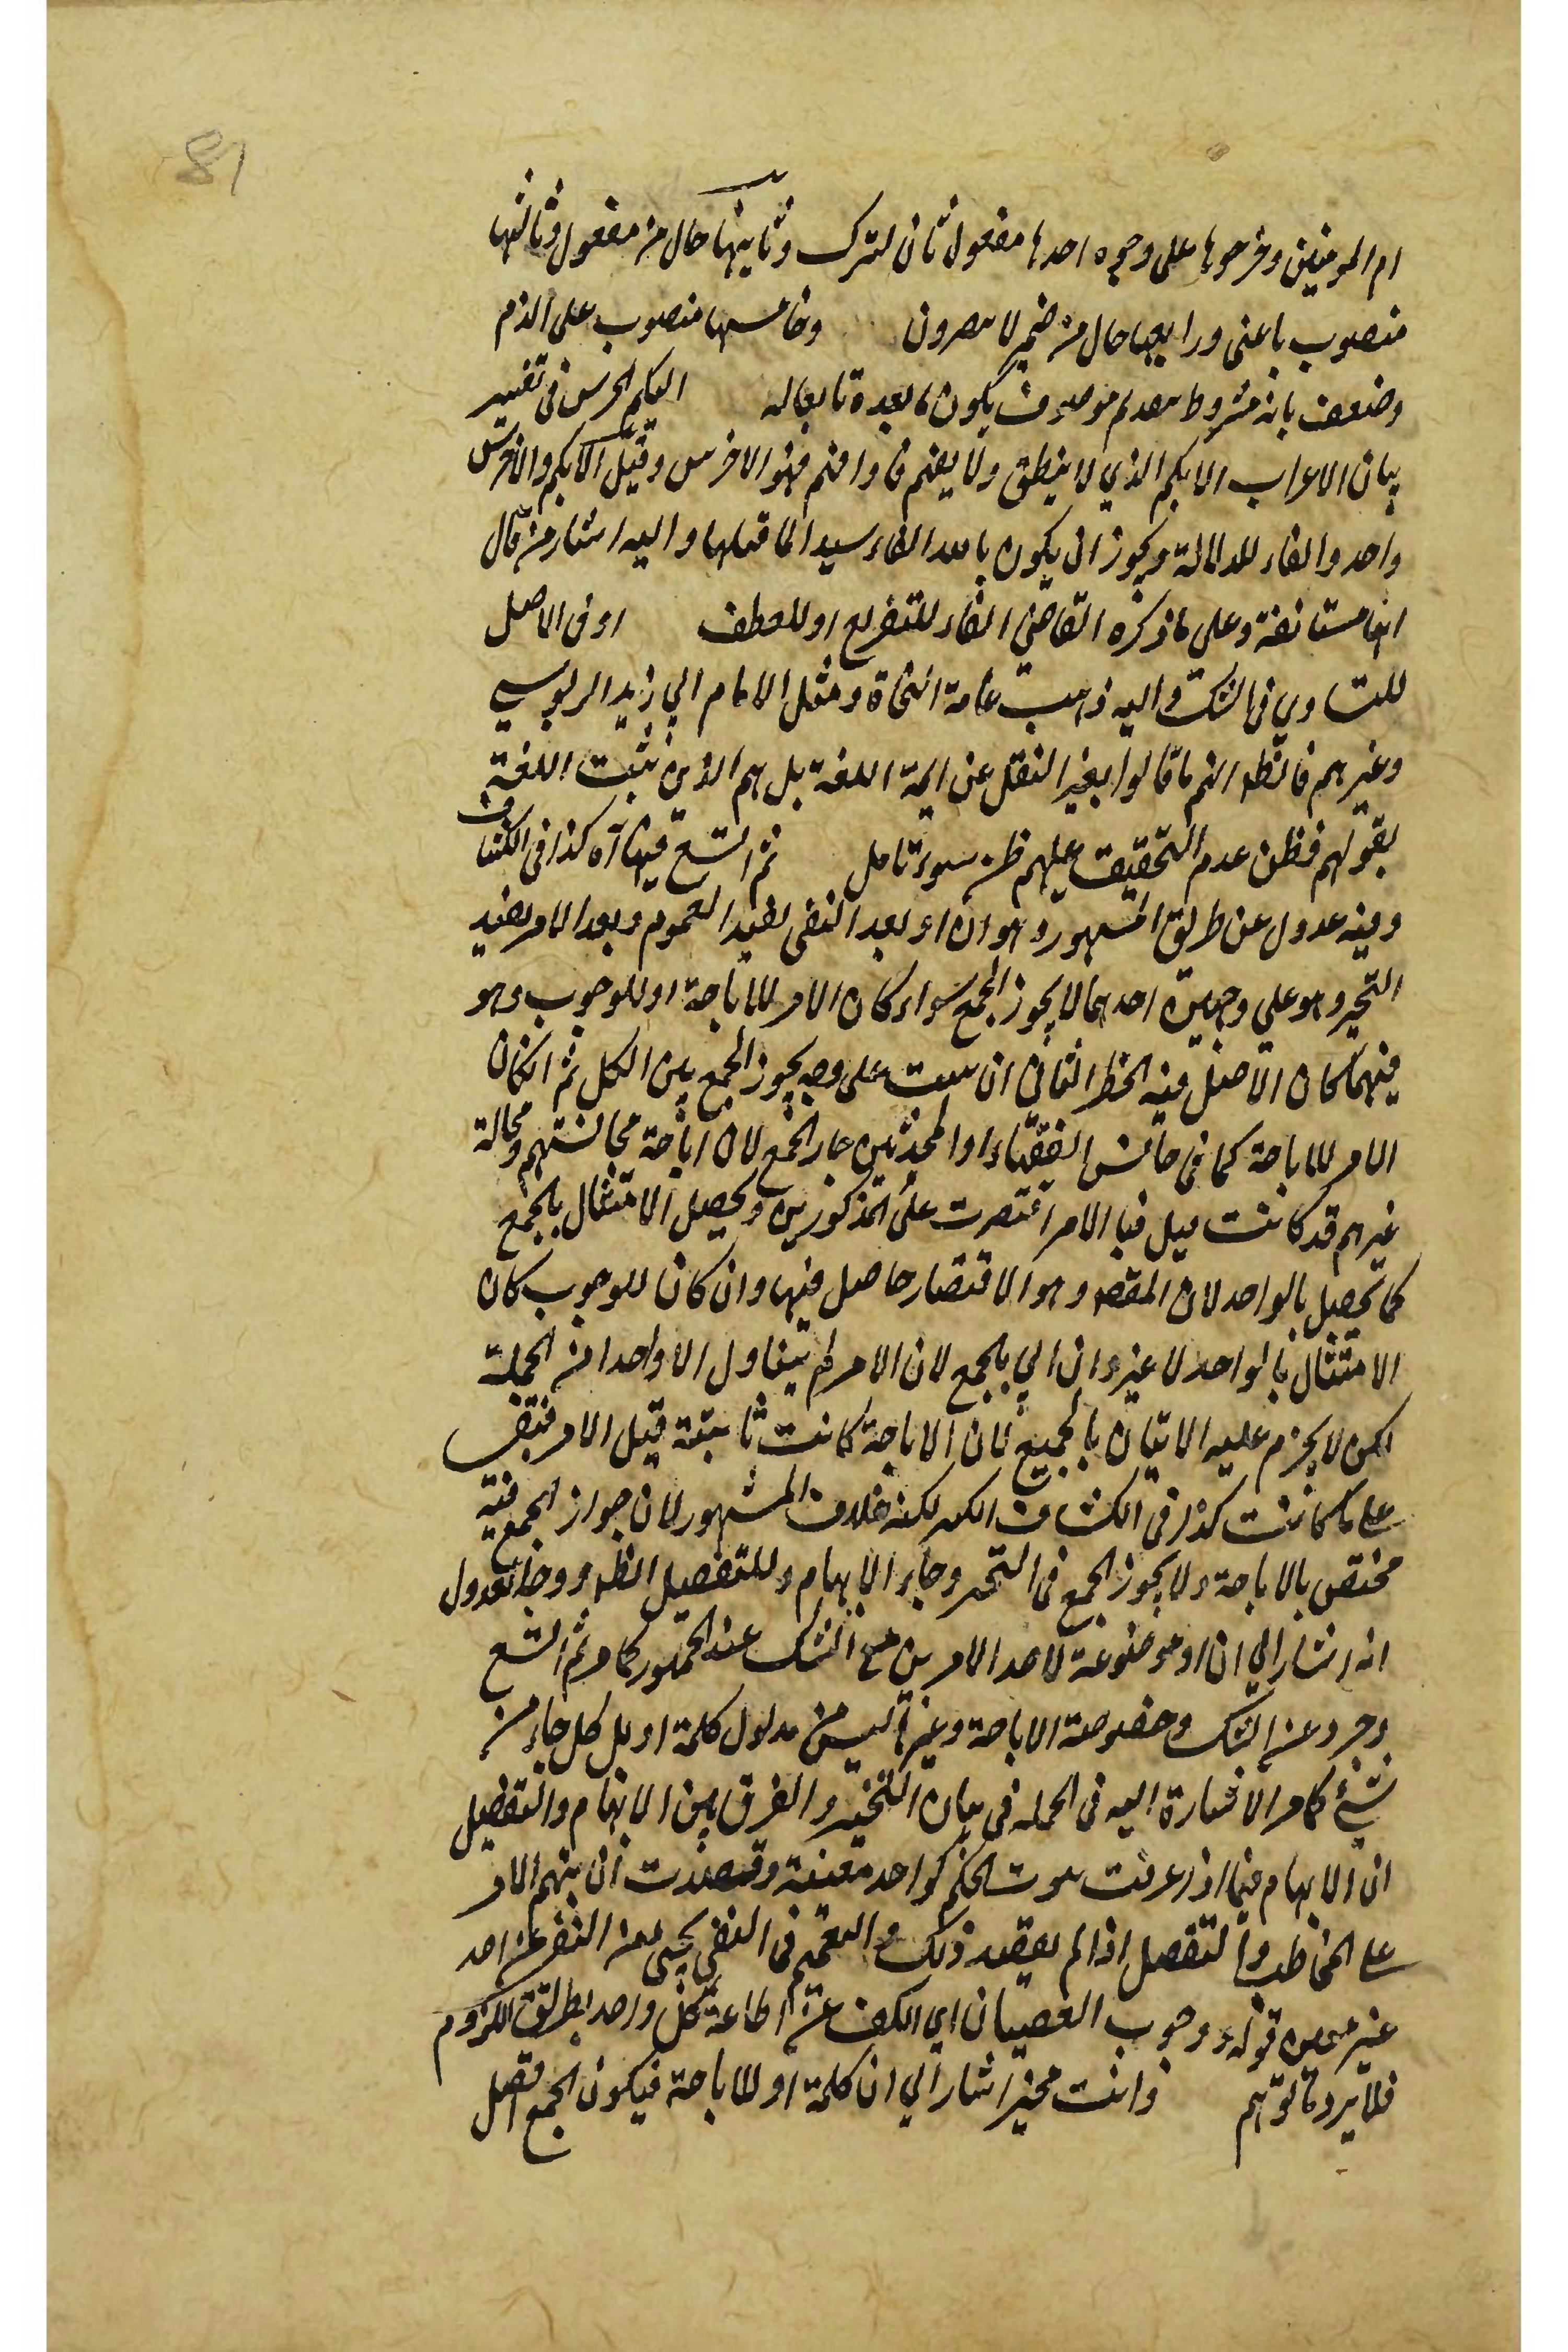 81
ام المومنين وخرجوها على وجوه احدها مفعول ثان لترك وثانيها حال من مفعول وثالثها
منصوب باعنى ورابعها حال من ضمير لا يبصرون وخامسها منصوب على الذم
وضعف بانه مشروط بتقدم موصوف يكون ما بعده تابعا له البكم الخرس فى تفسير
بيان الاعراب الابكم الذي لا ينطق ولا يفهم فاذا فهم فهو الاخرس وقيل الابكم والاخرس
واحد والفاء للدلالة ويجوز ان يكون ما بعد الفاء لما قبلها واليه اشار من قال
انها مستانفة وعلى ما ذكره القاضى الفاء للتفريع او للعطف او فى الاصل
للتساوي فى الشك واليه ذهبت عامة النحاة ومثل الامام ابي زيد الدبوسي
وغيرهم فالظ انهم ما قالوا بغير النقل عن ايمة اللغة بل هم الذين يثبت اللغة
بقولهم فظن عدم التحقيق عليهم ظن سوء تامل ثم اتسع فيها آه كذا فى الكشاف
وفيه عدول عن طريق المشهور وهو ان او بعد النفى يفيد العموم وبعد الامر يفيد
التخير وهو على وجهين احدهما لا يجوز الجمع سواء كان الامر للاباحة او للوجوب وهو
فيهما كان الاصل فيه الحظر الثانى ان على وجه يجوز الجمع بين الكل ثم ان كان
الامر للاباحة كما فى جالس الفقهاء او المحدثين جاز الجمع لان اباحة مجالستهم ومجالسة
غيرهم قد كانت قبل فبا الامر اقتصرت على المذكورين ويحصل الامتثال بالجمع
كما يحصل بالواحد لان المقصو هو الاقتصار حاصل فيها وان كان للوجوب كان
الامتثال بالواحد لا غير وان اتي بالجمع لان الامر لم يتناول الا واحدا من الجملة
لكن لا يحرم عليه الاتيان بالجميع لان الاباحة كانت ثابتة قبل الامر فتبقى
على ما كانت كذا فى الكشاف لكنه خلاف المشهور لان جواز الجمع فيه
مختص بالاباحة ولا يجوز الجمع فى التخير وجاء الابهام وللتفصيل الظ ووجه العدول
انه اشار الي ان او موضوعة لاحد الامرين مع الشك عند الجمهور كما مر ثم اتسع
وجرد عن الشك وخصوصة الاباحة وغيرها ليس من مدلول كلمة او بل كل جاء من
شيء كما مر الاشارة اليه فى الجملة فى بيان التخير والفرق بين الابهام والتفصيل
ان الابهام فيما اذا عرفت ثبوت الحكم لواحد معينة وقصدت ان يبهم الامر
على المخاطب والتفصيل اذا لم يقصد ذلك والتعميم فى النفى يجئ من النفى عن احد
غير معين قوله ووجوب العصيان اي الكف عن اطاعة كل واحد بطريق اللزوم
فلا يرد ما توهم وانت مخير اشار الي ان كلمة او للاباحة فيكون الجمع افضل